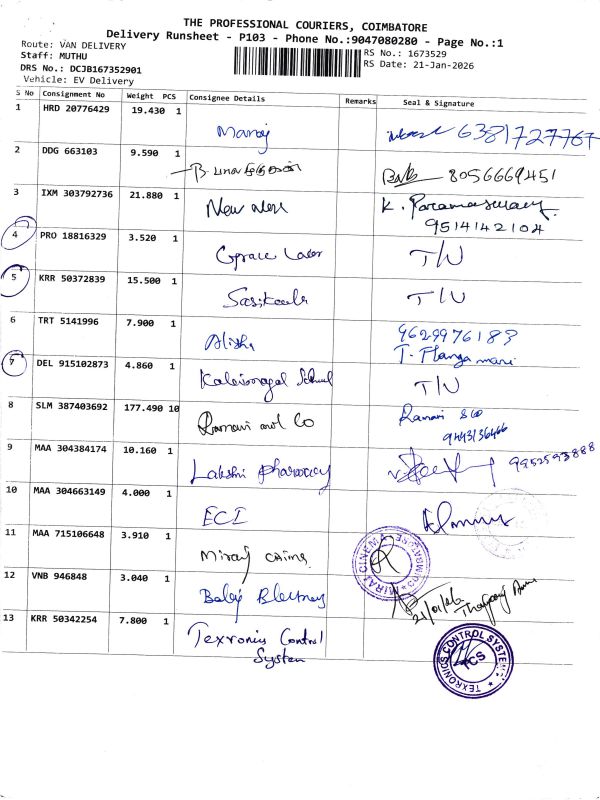 THE PROFESSIONAL COURIERS, COIMBATORE
Delivery Runsheet - P103 - Phone No.:9047080280 - Page No.:1
Route: VAN DELIVERY
Staff: MUTHU
DRS No.: DCJB167352901
Vehicle: EV Delivery
RS No.: 1673529
RS Date: 21-Jan-2026
S No Consignment No Weight PCS Consignee Details Remarks Seal & Signature
1 HRD 20776429 19.430 1
Manoj 6381727767
2 DDG 663103 9.590 1
B. 8056669451
3 IXM 303792736 21.880 1
New K. Paramasivam
9514142104
4 PRO 18816329 3.520 1
Grace Laser T/U
5 KRR 50372839 15.500 1
Sasikala T/U
6 TRT 5141996 7.900 1
Alisha 9629976183
T. Ilangamani
7 DEL 915102873 4.860 1
Kalaimagal School T/U
8 SLM 387403692 177.490 10
Ramani and Co Ramani & Co
9443136466
9 MAA 304384174 10.160 1
Lakshmi Pharmacy 9952593888
10 MAA 304663149 4.000 1
ECI
11 MAA 715106648 3.910 1
Miraj cinema MIRAJ CINEMA COIMBATORE
12 VNB 946848 3.040 1
Baby 21/01/26
13 KRR 50342254 7.800 1
Texronics Control
System
TEXRONICS CONTROL SYSTEMS
TCS